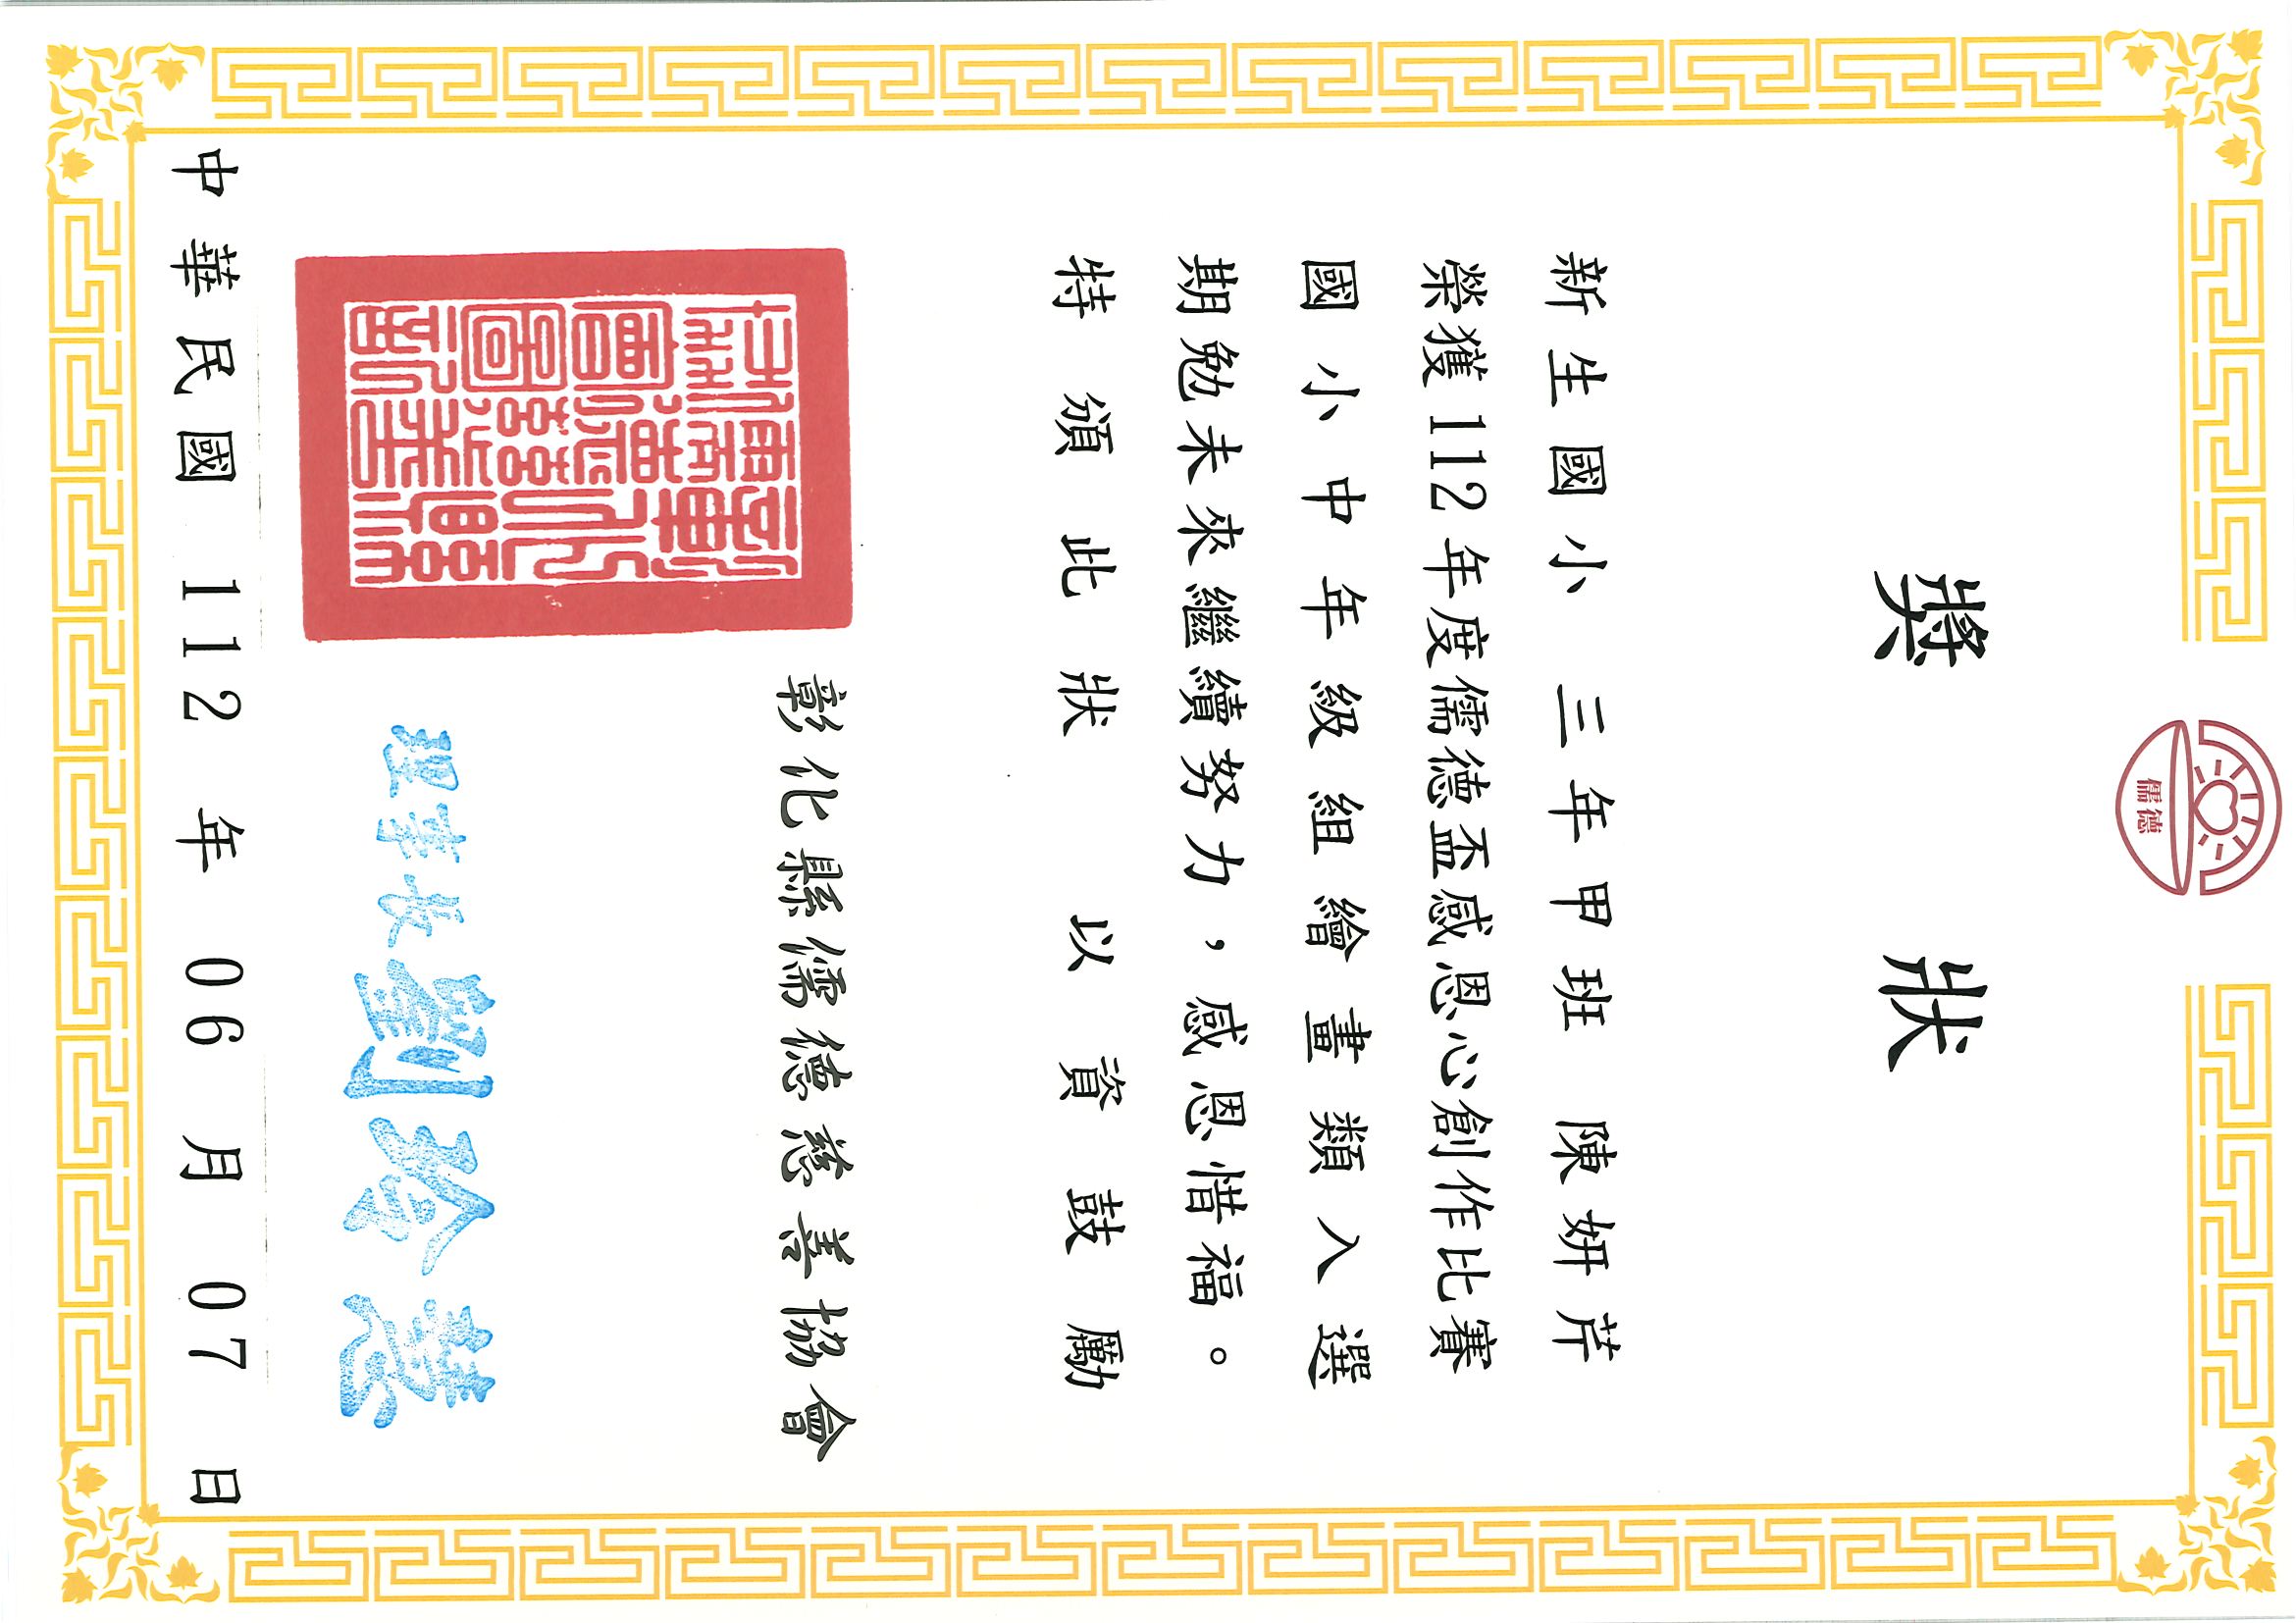 儒德
獎狀
新生國小 三年甲班 陳妍芹
榮獲112年度儒德盃感恩心創作比賽
國小中年級組繪畫類入選
期勉未來繼續努力，感恩惜福。
特頒此狀 以資鼓勵
彰化縣儒德慈善協會
理事長
中華民國112年06月07日